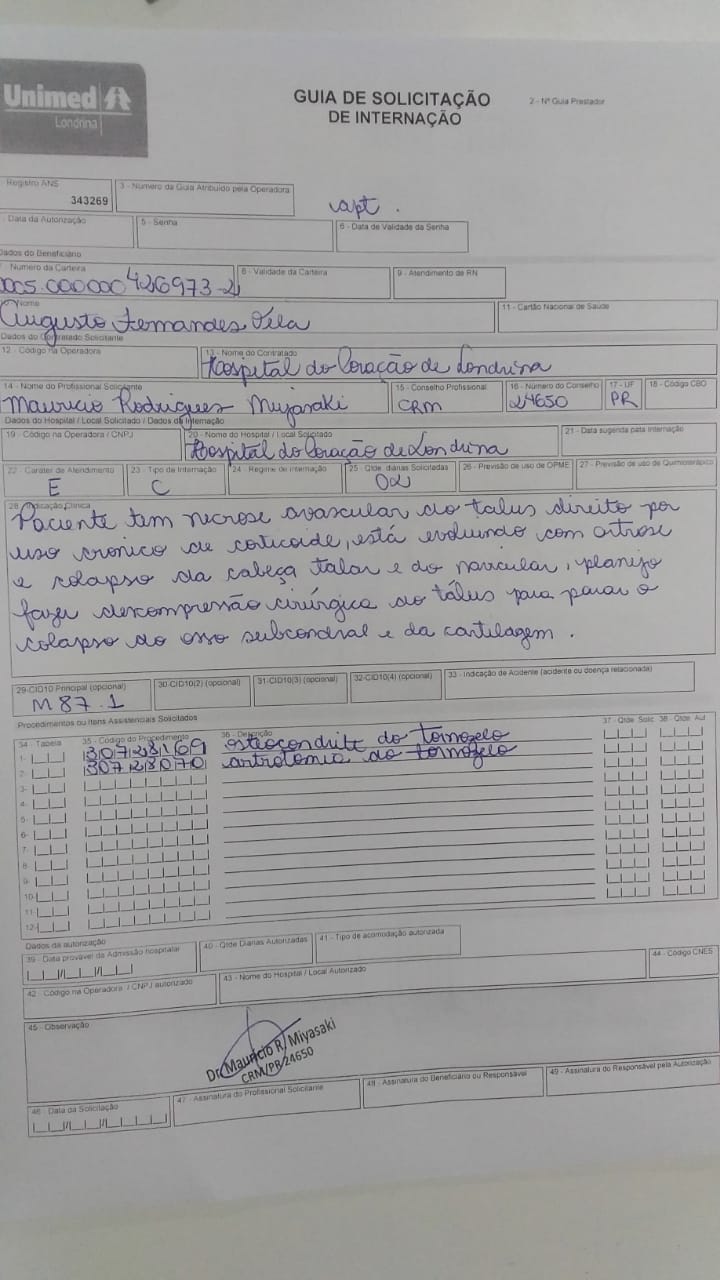 Unimed
Londrina
GUIA DE SOLICITAÇÃO
DE INTERNAÇÃO
2 - Nº Guia Prestador
Registro ANS
343269
3 - Número da Guia Atribuído pela Operadora
apt.
Data da Autorização
5 - Senha
6 - Data de Validade da Senha
Dados do Beneficiário
Número da Carteira
005.000000426973-2
8 - Validade da Carteira
9 - Atendimento de RN
Nome
Augusto Fernandes Vela
11 - Cartão Nacional de Saúde
Dados do Contratado Solicitante
12 - Código na Operadora
13 - Nome do Contratado
Hospital do Coração de Londrina
14 - Nome do Profissional Solicitante
Mauricio Rodrigues Myasaki
15 - Conselho Profissional
CRM
16 - Número do Conselho
24650
17 - UF
PR
18 - Código CBO
Dados do Hospital / Local Solicitado / Dados da Internação
19 - Código na Operadora / CNPJ
20 - Nome do Hospital / Local Solicitado
Hospital do Coração de Londrina
21 - Data sugerida para Internação
22 - Caráter de Atendimento
E
23 - Tipo de Internação
C
24 - Regime de Internação
25 - Qtde. diárias Solicitadas
02
26 - Previsão de uso de OPME
27 - Previsão de uso de Quimioterápico
28 - Indicação Clínica
Paciente tem necrose avascular do talus direito por
uso cronico de corticoide, está evoluindo com artrose
e colapso da cabeça talar e do navicular, planejo
fazer descompressão cirúrgica do tálus para parar o
colapso do osso subcondral e da cartilagem.
29-CID10 Principal (opcional)
M 87.1
30-CID10(2) (opcional)
31-CID10(3) (opcional)
32-CID10(4) (opcional)
33 - Indicação de Acidente (acidente ou doença relacionada)
Procedimentos ou Itens Assistenciais Solicitados
34 - Tabela
35 - Código do Procedimento
36 - Descrição
37 - Qtde Solic
38 - Qtde Aut
1- 30728169 osteocondrite do tornozelo
2- 30728070 artrotomia do tornozelo
3-
4-
5-
6-
7-
8-
9-
10-
11-
12-
Dados da autorização
39 - Data provável da Admissão hospitalar
40 - Qtde Diarias Autorizadas
41 - Tipo de acomodação autorizada
42 - Código na Operadora / CNPJ autorizado
43 - Nome do Hospital / Local Autorizado
44 - Código CNES
45 - Observação
Dr. Mauricio R. Miyasaki
CRM/PR 24650
46 - Data da Solicitação
47 - Assinatura do Profissional Solicitante
48 - Assinatura do Beneficiário ou Responsável
49 - Assinatura do Responsável pela Autorização